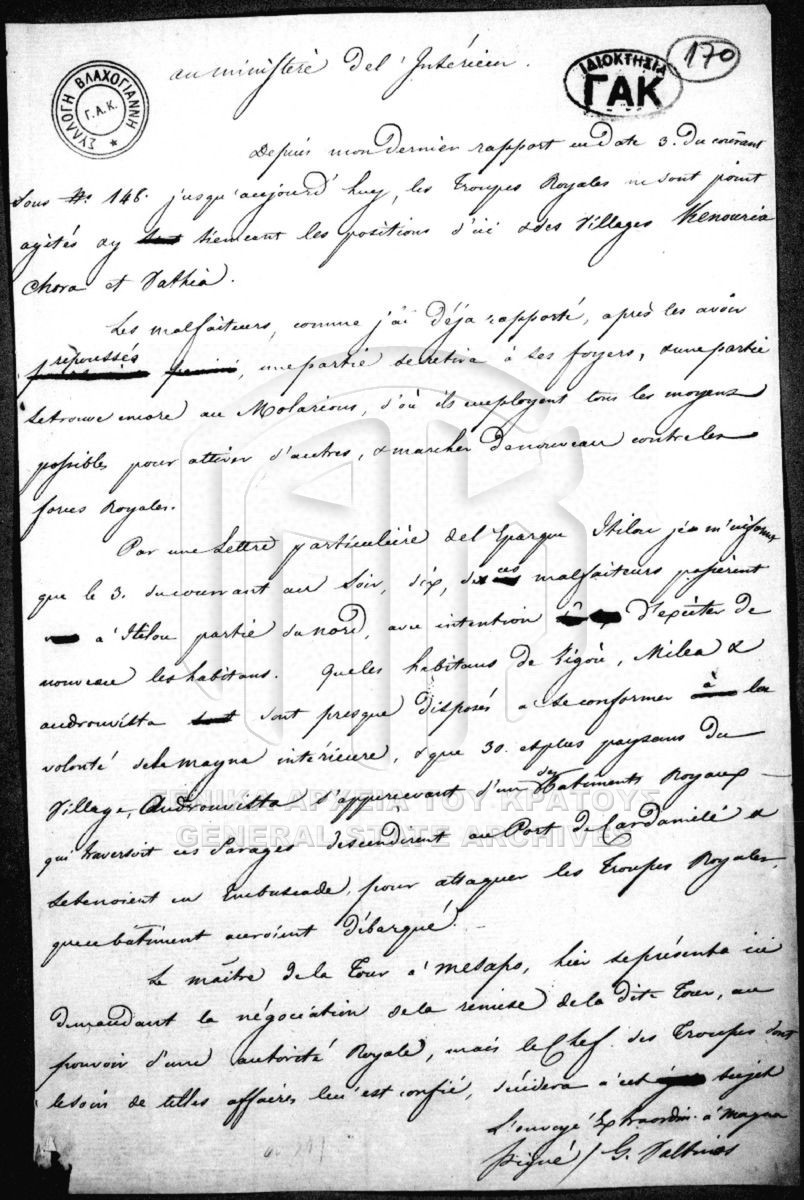 au ministère de l'Intérieur.
ΣΥΛΛΟΓΗ ΒΛΑΧΟΓΙΑΝΝΗ
Γ.Α.Κ.
ΙΔΙΟΚΤΗΣΙΑ
ΓΑΚ
170
Depuis mon dernier rapport en date 3. du courant
sous No. 148. jusqu'aujourd'huy, les Troupes Royales ne sont point
agités & y tiennent les positions d'ici & des Villages Kenouria
Chora et Vathia.
Les malfaiteurs, comme j'ai déja rapporté, après les avoir
repoussés, une partie se retira à ses foyers, & une partie
se trouve encore au Molarious, d'où ils employent tous les moyens
possibles pour attirer d'autres, & marcher de nouveau contre les
forces Royales.
Par une Lettre particulière de l'Eparque Itilou je m'informe
que le 3. du courrant au Soir, dix, de ces malfaiteurs passèrent
à Itilou partie du nord, avec intention d'exciter de
nouveau les habitans. Que les habitans de Milea &
androuvista sont presque disposés à se conformer la
volonté de la magna intérieure, & que 30. et plus paysans du
Village, Androuvista s'appercevant d'un des Batiments Royaux
qui traversoit ces Parages descendirent au Port de Cardamilé &
se tenoient en Embuscade, pour attaquer les Troupes Royales,
que ce bâtiment auroient débarqué.
ΓΕΝΙΚΑ ΑΡΧΕΙΑ ΤΟΥ ΚΡΑΤΟΥΣ
GENERAL STATE ARCHIVES
Le maître de la Tour à mesapo, hier se présenta ici
demandant la négociation de la remise de la dite Tour, au
pouvoir d'une autorité Royale, mais le Chef des Troupes dont
le soin de telles affaires lui est confié, décidera à cet sujet
L'envoyé Extraordin. à Magna
signé / G.